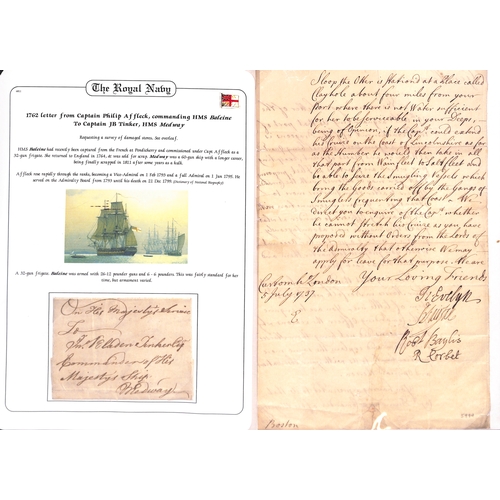 The Royal Navy
1762 letter from Captain Philip Affleck, commanding HMS Baleine
To Captain JB Tinker, HMS Medway
Requesting a survey of damaged stores. See overleaf.
HMS Baleine had recently been captured from the French at Pondicherry and commissioned under Capt Affleck as a
32-gun frigate. She returned to England in 1764, & was sold for scrap. Medway was a 60-gun ship with a longer career,
being finally scrapped in 1811 after some years as a hulk.
Affleck rose rapidly through the ranks, becoming a Vice-Admiral on 1 Feb 1793 and a full Admiral on 1 Jun 1795. He
served on the Admiralty Board from 1793 until his death on 21 Dec 1799. (Dictionary of National Biography)
A 32-gun frigate, Baleine was armed with 26-12 pounder guns and 6-6 pounders. This was fairly standard for her
time, but armament varied.
On His Majesty's Service
To
Jno. Bladen Tinker Esqr
Commander of His
Majesty's Ship
Medway
Sloop the Otter is stationd at a place called
Clayhole about four miles from your
Port where there is not Water sufficient
for her to be serviceable in your Deeps,
being of Opinion, if the Capt. could extend
his Cruize on the Coast of Lincolnshire as far
as the Humber he would then take in all
that part from Wainfleet to Saltfleet and
be able to seize the Smugling Vessels which
bring the Goods carried off by the Gangs of
Smuglers frequenting that Coast. We
direct you to enquire of the Capt. whether
he cannot stretch his Cruize as you have
proposed without Orders from the Lords of
the Admiralty that otherwise We may
apply for leave for that purpose. We are
Customho. London Your Loving Friends
5 July 1737
Jn Evelyn
Robt Baylis
R Corbet
Boston